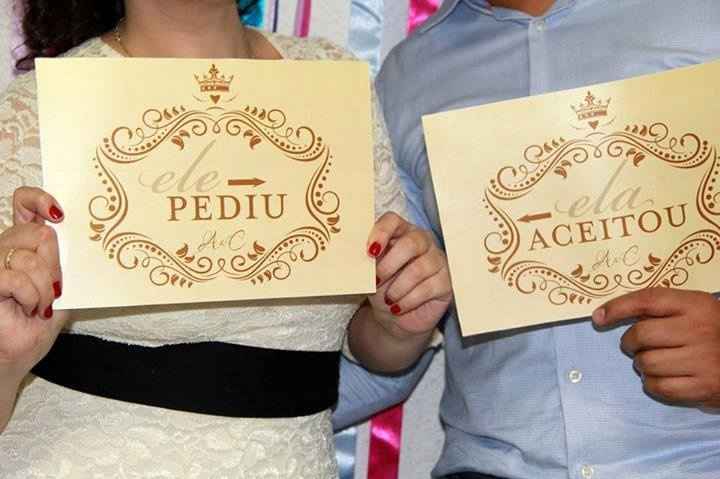 ele
PEDIU
A&C
ela
ACEITOU
A&C